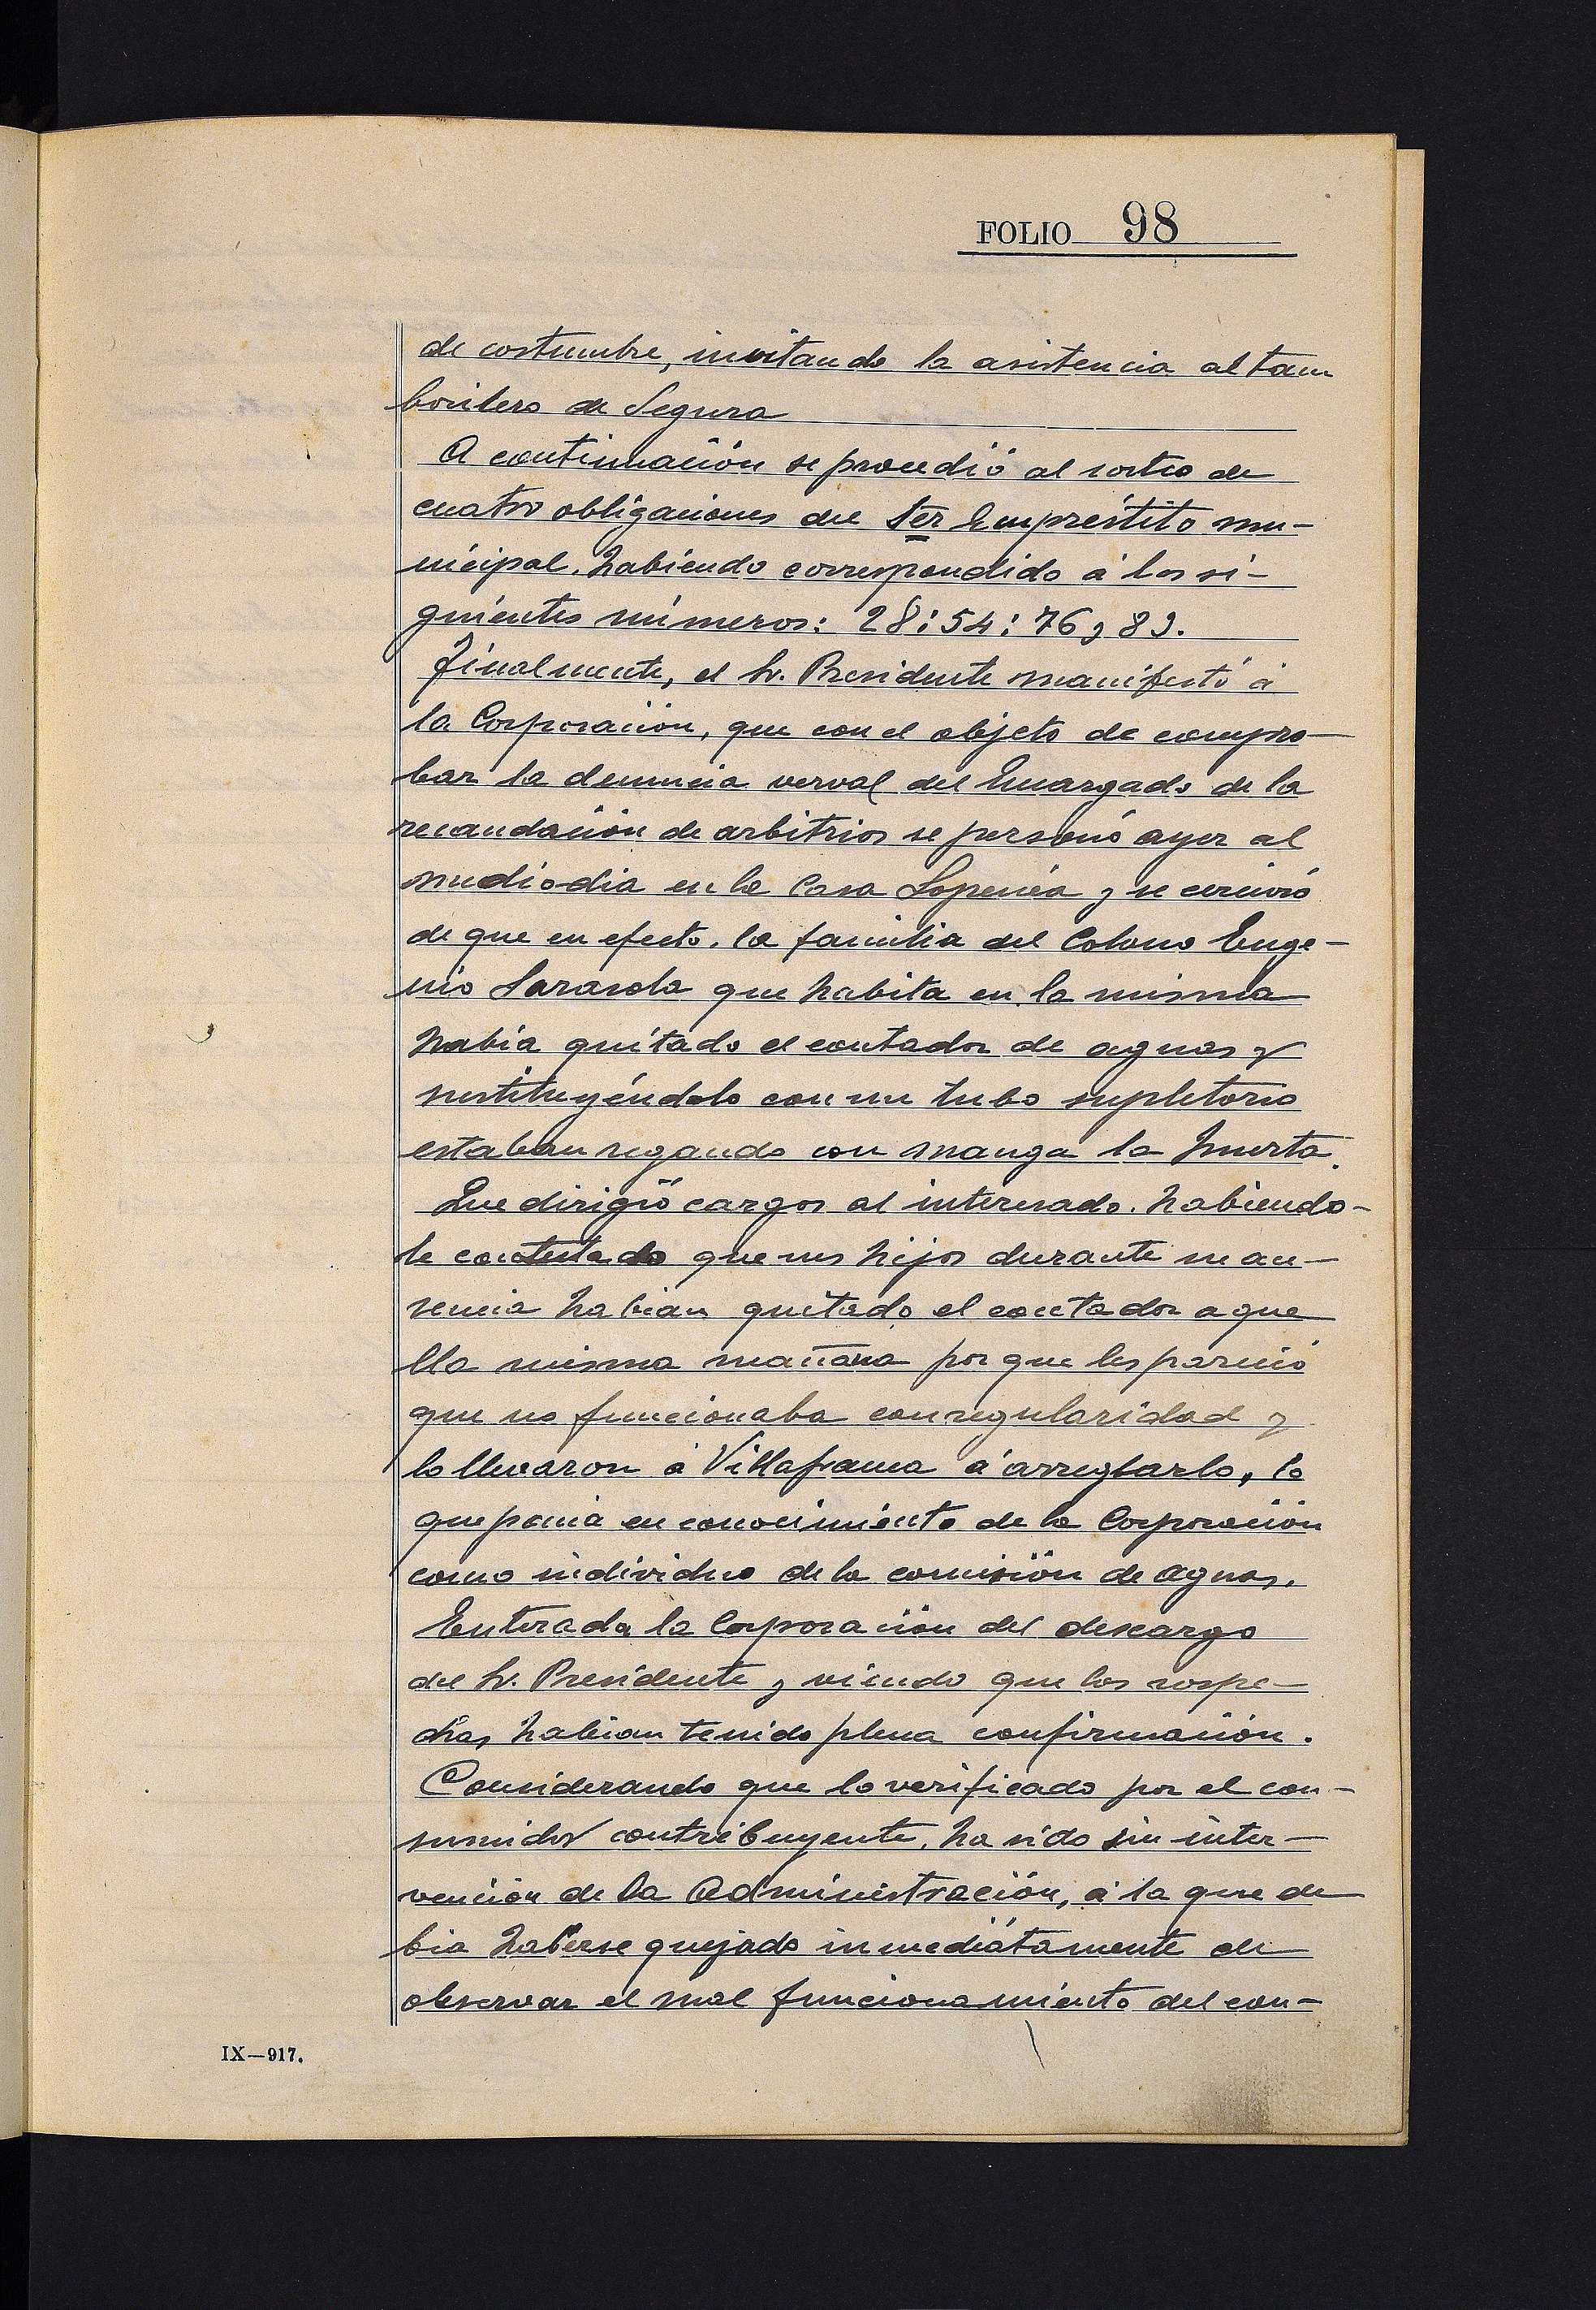 FOLIO 98
de costumbre, invitando la asistencia al tam
borilero de Segura
A continuación se procedió al sorteo de
cuatro obligaciones del 1er Empréstito mu-
nicipal, habiendo correspondido á los si-
guientes números: 28: 54: 76 y 89.
Finalmente, el Sr. Presidente manifestó á
la Corporación, que con el objeto de compro-
bar la denuncia verval del Encargado de la
recaudación de arbitrios se personó ayer al
mediodia en la Casa y se cercioró
de que en efecto, la familia del Colono Euge-
nio Sarasola que habita en la misma
habia quitado el contador de aguas y
sustituyéndolo con un tubo supletorio
estaban regando con manga la huerta.
Que dirigió cargos al interesado, habiendo-
le contestado que sus hijos durante su au-
sencia habian quitado el contador aque
lla misma mañana por que les pareció
que no funcionaba con regularidad y
lo llevaron á Villafranca á arreglarlo, lo
que ponia en conocimiento de la Corporación
como individuo de la comisión de aguas.
Enterada la Corporación del descargo
del Sr. Presidente y viendo que las sospe-
chas habian tenido plena confirmación.
Considerando que lo verificado por el con-
sumidor contribuyente, ha sido sin inter-
vención de la Administración, á la que de
bia haberse quejado inmediátamente de
observar el mal funcionamiento del con-
IX—917.